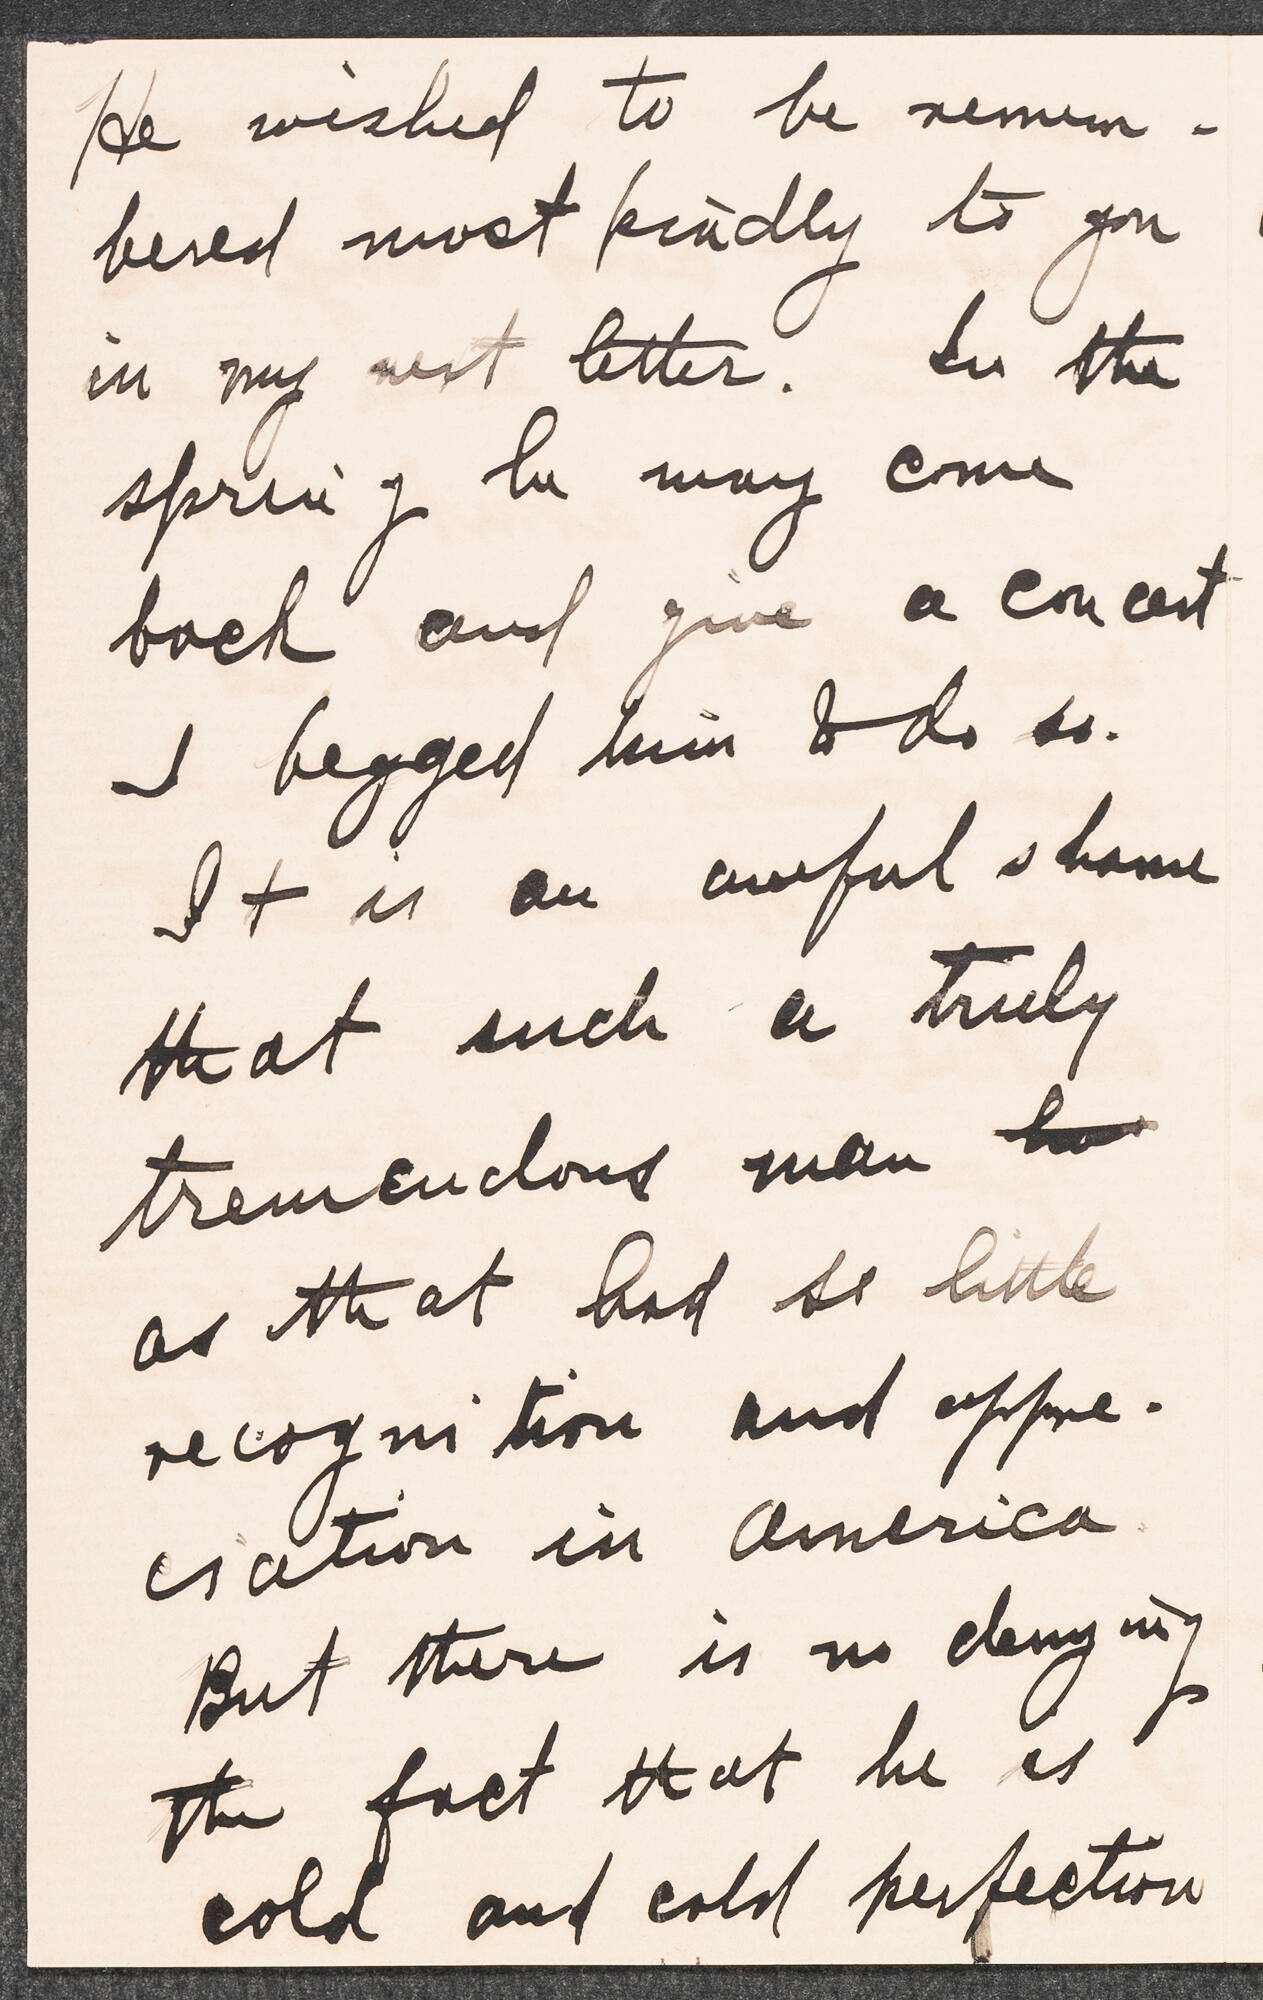 He wished to be remem-
bered most kindly to you
in my next letter. In the
spring he may come
back and give a concert
I begged him to do so.
It is an aweful shame
that such a truly
tremendous man
as that had so little
recognition and appre-
ciation in America
But there is no denying
the fact that he is
cold and cold perfection